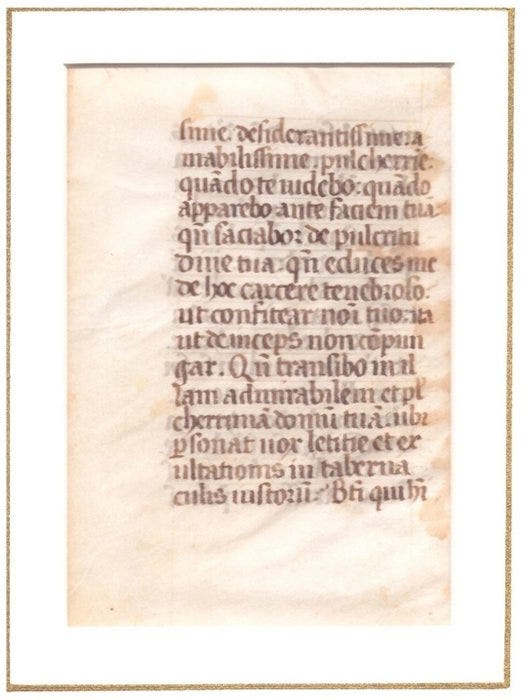 sime. desiderantissime. a
mabilissime. pulcherrie.
quādo te uidebo: quādo
apparebo ante faciem tuā.
qn̄ saciabor de pulcritu
dine tua. qn̄ educes me
de hoc carcere tenebroso.
ut confitear noī tuo. ita
ut deinceps non conpun
gar. Qn̄ transibo in il
lam admirabilem et pl
cherrimā domū tuā. ubi
ꝑsonat uox letitie et ex
ultationis in taberna
culis iustorū. Bt̄i qui hı̄